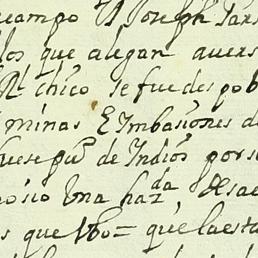 ocampo D Joseph Pars
los que alegan avers
Rl chico se fue despob
minas E Imbasiones d
fuese pr de Indios por s
osio Una hazda, Desae
s que Vbo= que la esta